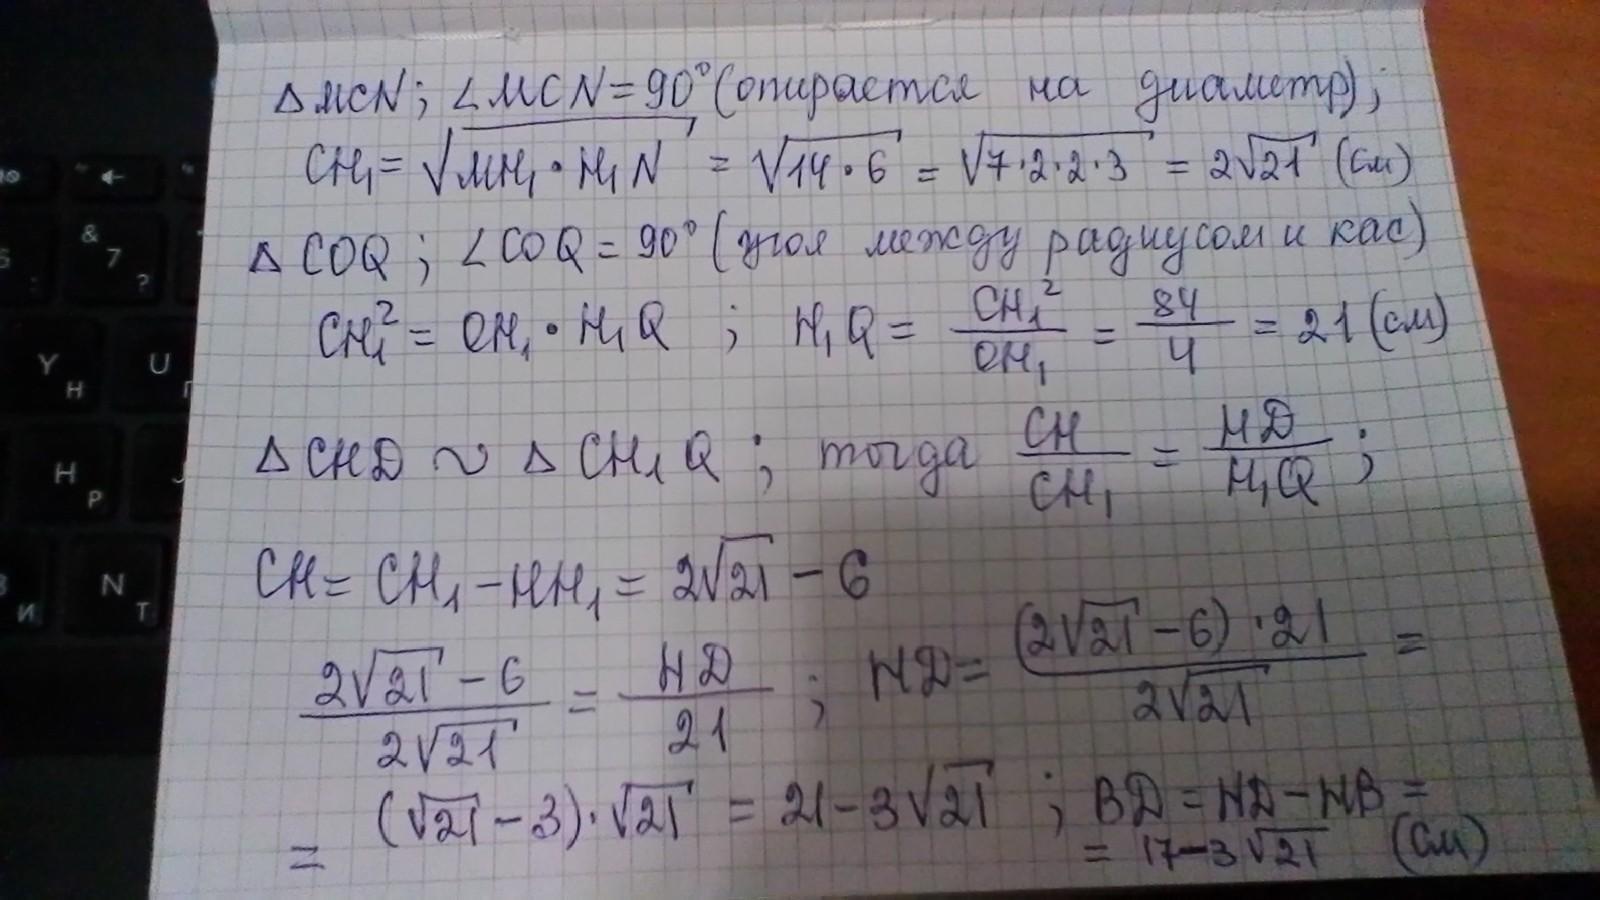 △MCN; ∠MCN = 90° (опирается на диаметр);
CH₁ = √(MH₁ · H₁N) = √(14 · 6) = √(7·2·2·3) = 2√21 (см)
△COQ; ∠COQ = 90° (угол между радиусом и кас)
CH₁² = OH₁ · H₁Q ; H₁Q = CH₁²/OH₁ = 84/4 = 21 (см)
△CHD ~ △CH₁Q ; тогда CH/CH₁ = HD/H₁Q ;
CH = CH₁ – HH₁ = 2√21 – 6
(2√21 – 6)/(2√21) = HD/21 ; HD = ((2√21 – 6) · 21)/(2√21) =
= (√21 – 3) · √21 = 21 – 3√21 ; BD = HD – HB =
= 17 – 3√21 (см)
&
7
?
Y
Н
U
Н
Р
N
Т
И